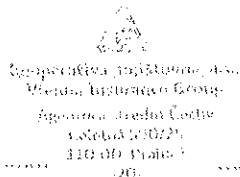 Kooperativa pojišťovna, a.s.
Vienna Insurance Group
Agentura střední Čechy
110 00 Praha 1
20.